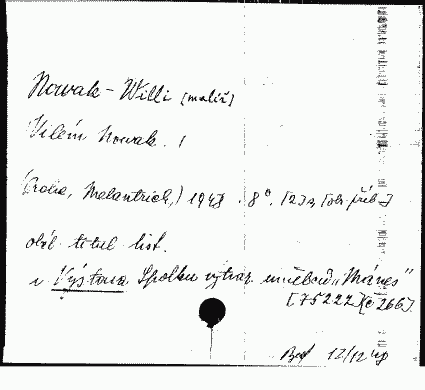 Nowak - Willi [malíř]
Vilém Nowak.
(Praha, Melantrich,) 1948. 8°. [2] s, [obr. příl.]
obál. titul. list.
v Výstava Spolku výtvar. umělců "Mánes"
[75222][c 266].
12/12